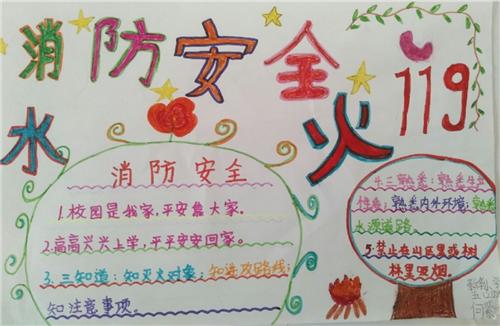 消防安全
119
水
火
消防安全
1.校园是我家,平安靠大家。
2.高高兴兴上学,平平安安回家。
3.三知道:知灭火对象;知进攻路线;
知注意事项。
熟悉生产
性质;熟悉内外环境;熟悉
水源道路
5.禁止在山区里或树
林里耍烟。